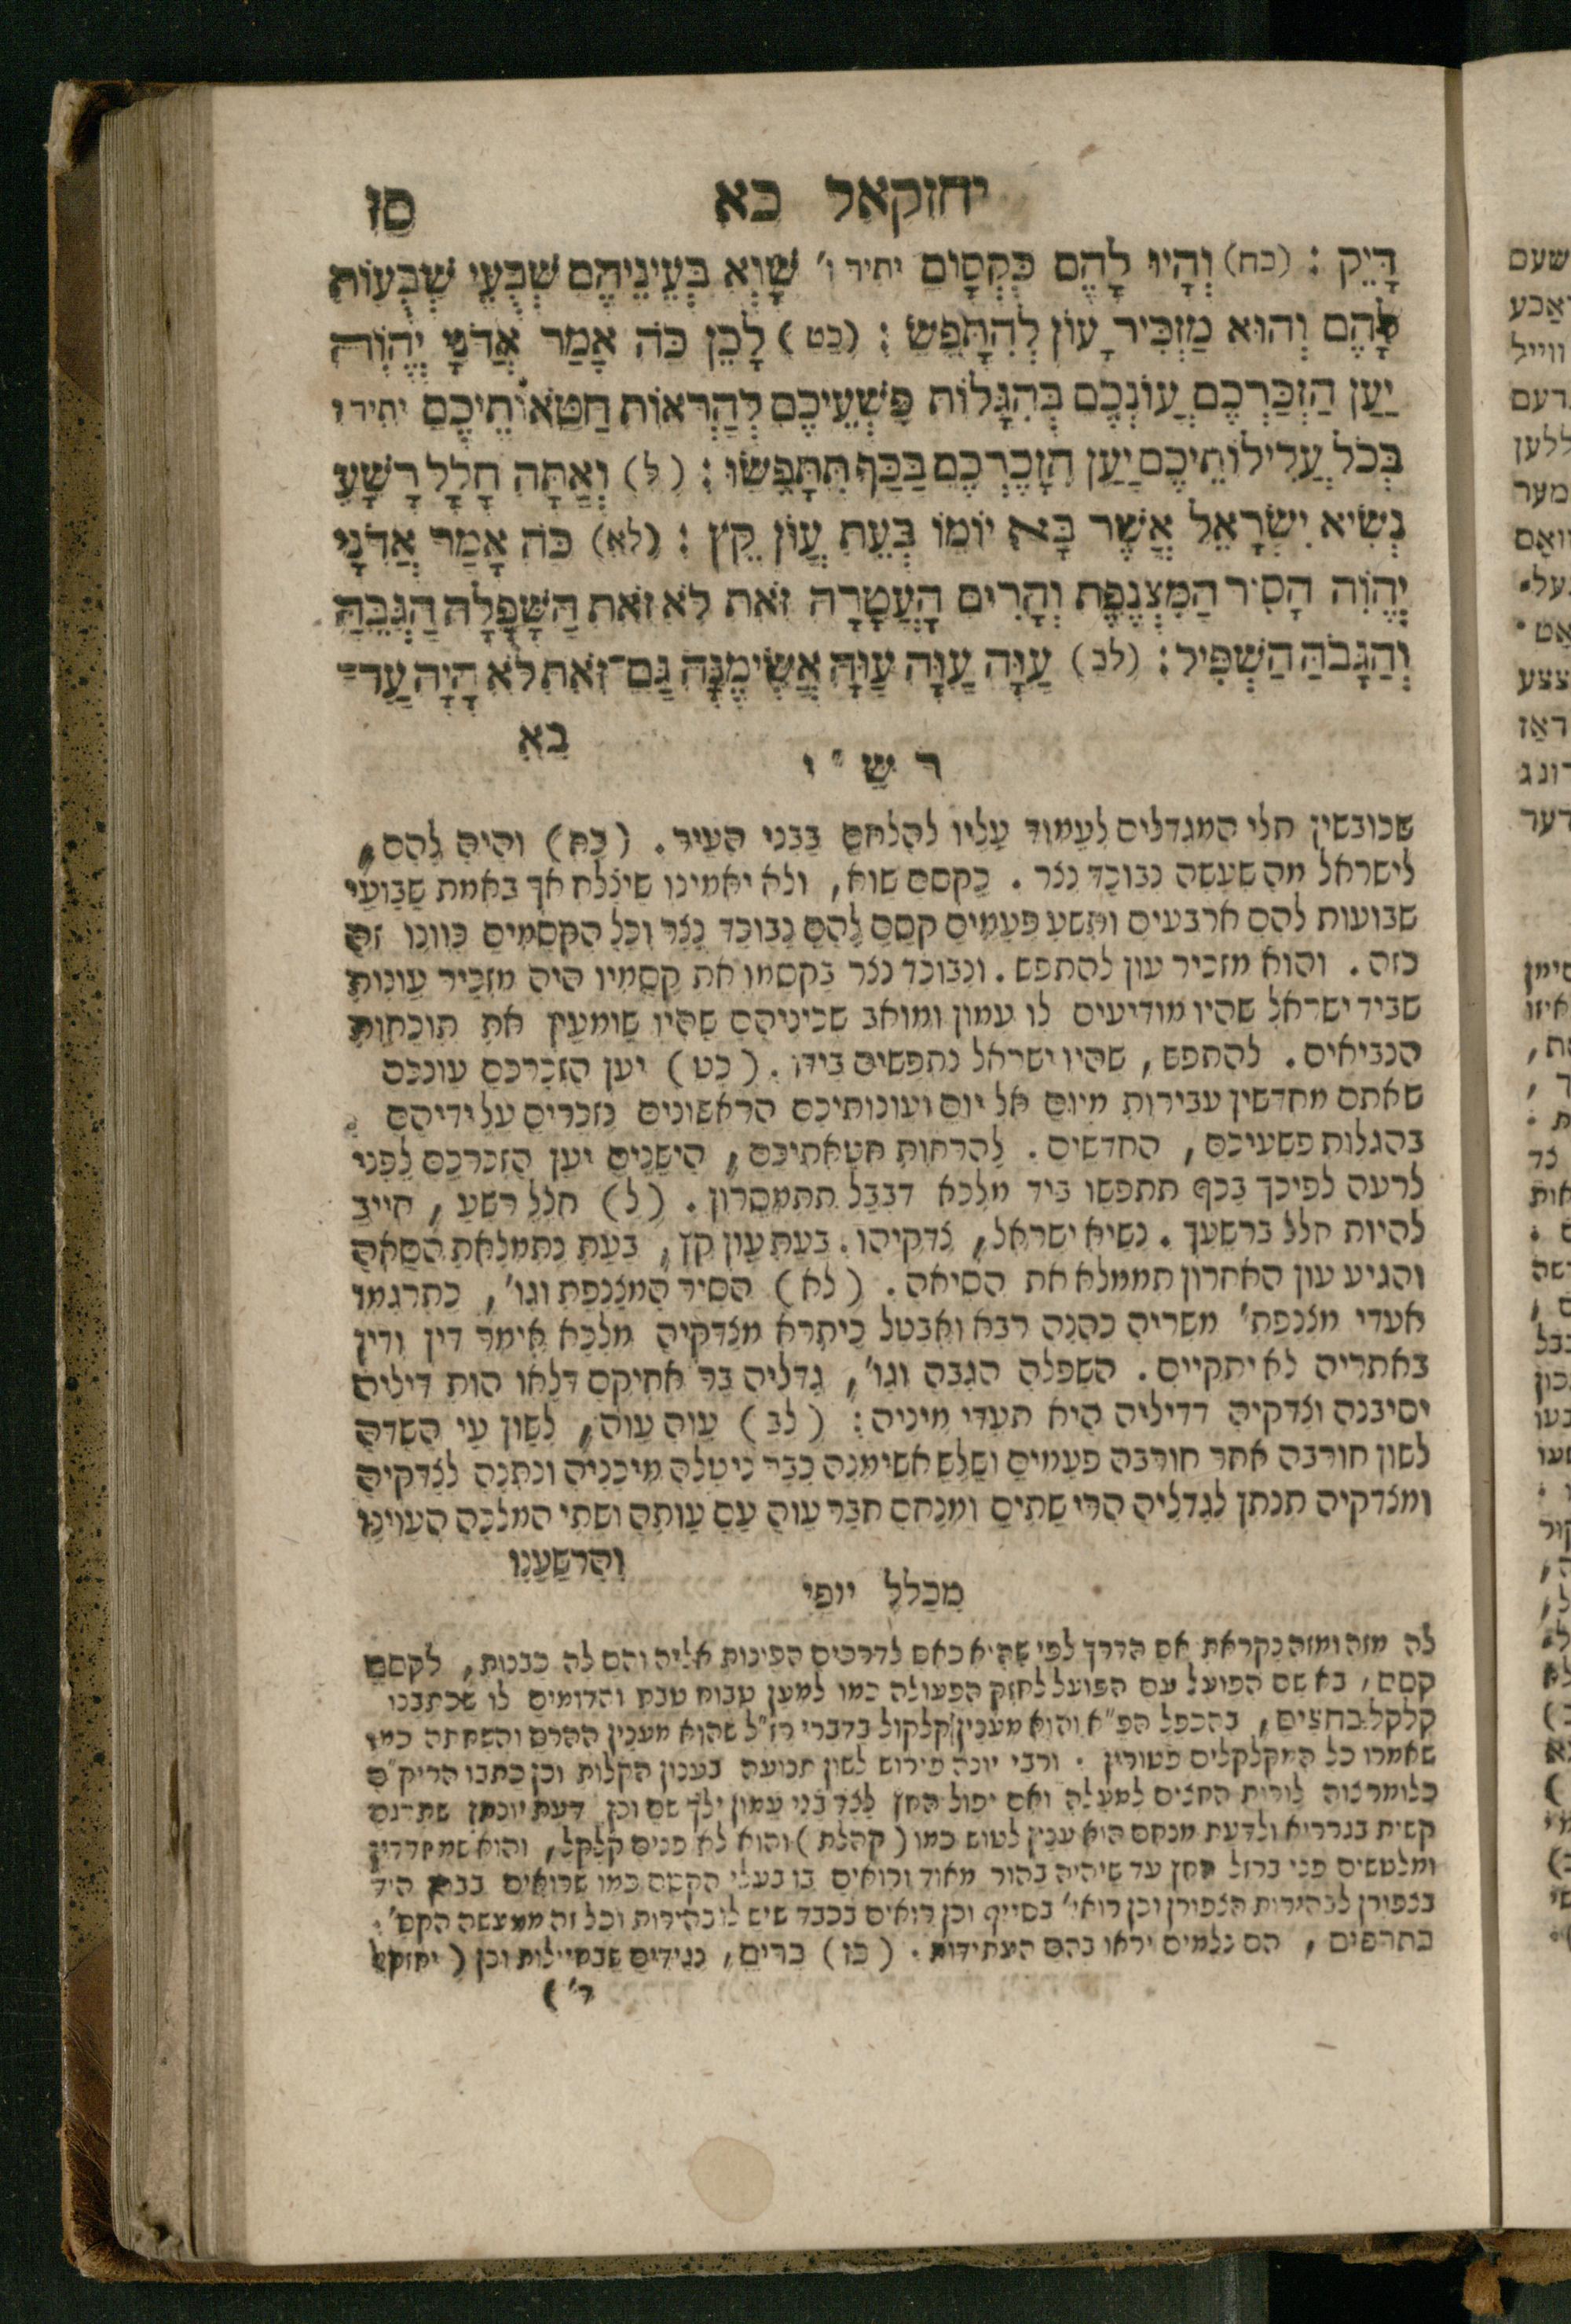 יחזקאל כא סז
דָּיֵק : (כח) וְהָיוּ לָהֶם כִּקְסָום יתיר ו׳ שָׁוְא בְּעֵינֵיהֶם שְׁבֻעֵי שְׁבֻעוֹת
לָהֶם וְהוּא מַזְכִּיר עָוֹן לְהִתָּפֵשׂ : (כט) לָכֵן כֹּה אָמַר אֲדֹנָי יֱהֹוִה
יַעַן הַזְכַּרְכֶם עֲוֹנְכֶם בְּהִגָּלוֹת פִּשְׁעֵיכֶם לְהֵרָאוֹת חַטֹּאותֵיכֶם יתיר ו
בְּכֹל עֲלִילוֹתֵיכֶם יַעַן הִזָּכֶרְכֶם בַּכַּף תִּתָּפֵשׂוּ : (ל) וְאַתָּה חָלָל רָשָׁע
נְשִׂיא יִשְׂרָאֵל אֲשֶׁר בָּא יוֹמוֹ בְּעֵת עֲוֹן קֵץ : (לא) כֹּה אָמַר אֲדֹנָי
יֱהֹוִה הָסִיר הַמִּצְנֶפֶת וְהָרִים הָעֲטָרָה זֹאת לֹא זֹאת הַשָּׁפָלָה הַגְבֵּהַּ
וְהַגָּבֹהַּ הַשְׁפִּיל : (לב) עַוָּה עַוָּה עַוָּה אֲשִׂימֶנָּה גַּם־זֹאת לֹא הָיָה עַד־
בֹּא
ר ש ״ י
שכובשין חלי המגדלים לעמוד עליו להלחם בבני העיר. (כח) והיה להם,
לישראל מה שעשה נבוכד נצר. כקסם שוא, ולא יאמינו שיצלח אך באמת שבועי
שבועות להם ארבעים ותשע פעמים קסם להם נבוכד נצר וכל הקסמים כוונו זה
כזה. והוא מזכיר עון להתפש. ונבוכד נצר בקסמו את קסמיו היה מזכיר עונות
שביד ישראל שהיו מודיעים לו עמון ומואב שכיניהם שהיו שומעין את תוכחות
הנביאים. להתפש, שהיו ישראל נתפשים בידו. (כט) יען הזכרכם עונכם
שאתם מחדשין עבירות מיום אל יום ועונותיכם הראשונים נזכרים על ידיהם.
בהגלות פשעיכם, החדשים. להראות חטאתיכם, הישנים יען הזכרכם לפני
לרעה לפיכך בכף תתפשו ביד מלכא דבבל תתמסרון. (ל) חלל רשע, חייב
להיות חלל ברשעך. נשיא ישראל, צדקיהו. בעת עון קץ, בעת נתמלאת הסאה
והגיע עון האחרון תממלא את הסיאה. (לא) הסיר המצנפת וגו׳, כתרגמו
אעדי מצנפת׳ משריה כהנה רבא ואבטל כיתרא מצדקיה מלכא אימר דין ודין
באתריה לא יתקיים. השפלה הגבה וגו׳, גדליה בר אחיקם דלאו הות דיליה
יסיבנה וצדקיה דדיליה היא תעדי מיניה : (לב) עוה עוה, לשון עי השדה
לשון חורבה אחר חורבה פעמים ושלש אשימנה כבר ניטלה מיכניה ונתנה לצדקיה
ומצדקיה תנתן לגדליה הרי שתים ומנחם חבר עוה עם עותה ושתי המלכה העוינו
והרשענו
מכלל יופי
לה מזה ומזה נקראת אם הדרך לפי שהיא כאם לדרכים הפינות אליה והם לה כבנות, לקסם
קסם, בא שם הפועל עם הפועל לחזק הפעולה כמו למען טבוח טבח והדומים לו שכתבנו
קלקל בחצים, בהכפל הפ״א והוא מענין קלקול בדברי רז״ל שהוא מענין ההרס והשחתה כמו
שאמרו כל המקלקלים פטורין. ורבי יונה פירוש לשון תנועה בענין הקלות וכן כתבו הריק״ם
כלומר צוה לורות החצים למעלה ואם יפול החץ לצד בני עמון ילך שם וכן דעת יונתן שת־גם
קשית בגרריא ולדעת מנחם הוא ענין לטוש כמו (קהלת) והוא לא פנים קלקל, והוא שמחדדין
ומלטשים פני ברזל החץ עד שיהיה בהור מאוד ורואים בו בעלי הקסם כמו שרואים בבהן היד
בצפורן לבהירות הצפורן וכן רואי׳ בסייף וכן רואים בכבד שיש לו בהירות וכל זה ממעשה הקס׳ :
בתרפים, הם צלמים יראו בהם העתידות. (כז) כרים, נגידים שבחיילות וכן (יחזקאל
ד׳)